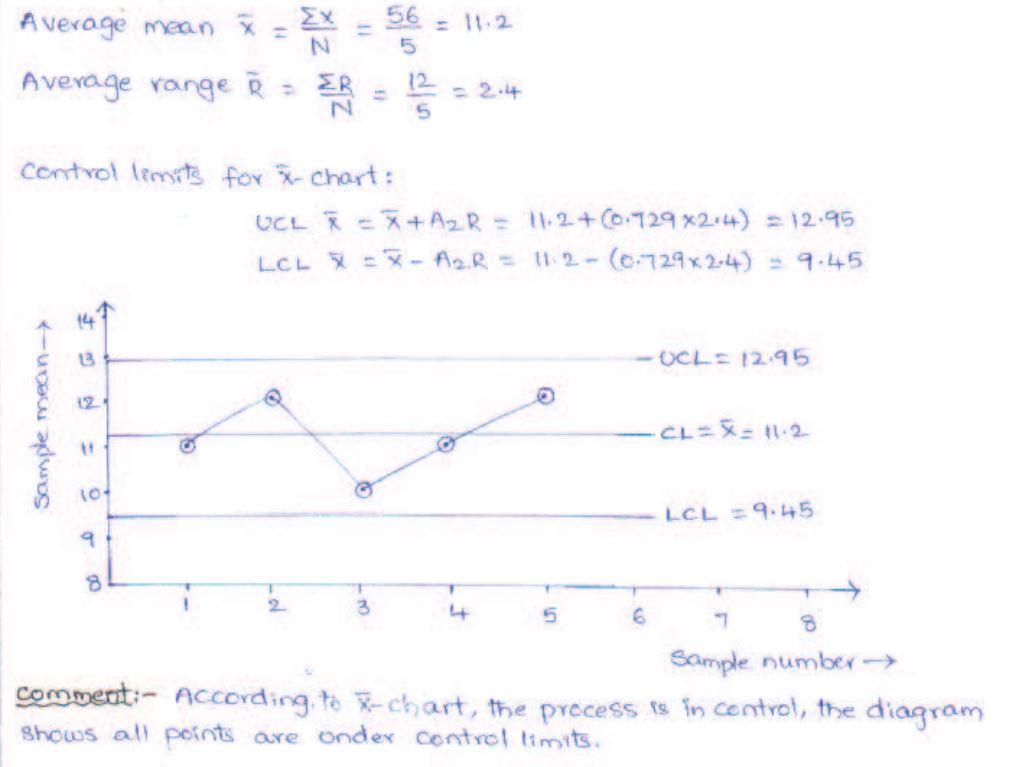 Average mean x̄ = ΣX/N = 56/5 = 11.2
Average range R̄ = ΣR/N = 12/5 = 2.4
Control limits for x̄- chart:
UCL x̄ = x̄ + A₂R = 11.2 + (0.729 x 2.4) = 12.95
LCL x̄ = x̄ - A₂R = 11.2 - (0.729 x 2.4) = 9.45
Sample mean →
14
13
UCL = 12.95
12
11
CL = x̄ = 11.2
10
LCL = 9.45
9
8
1 2 3 4 5 6 7 8
Sample number →
comment:- According to x̄-chart, the process is in control, the diagram
shows all points are under control limits.